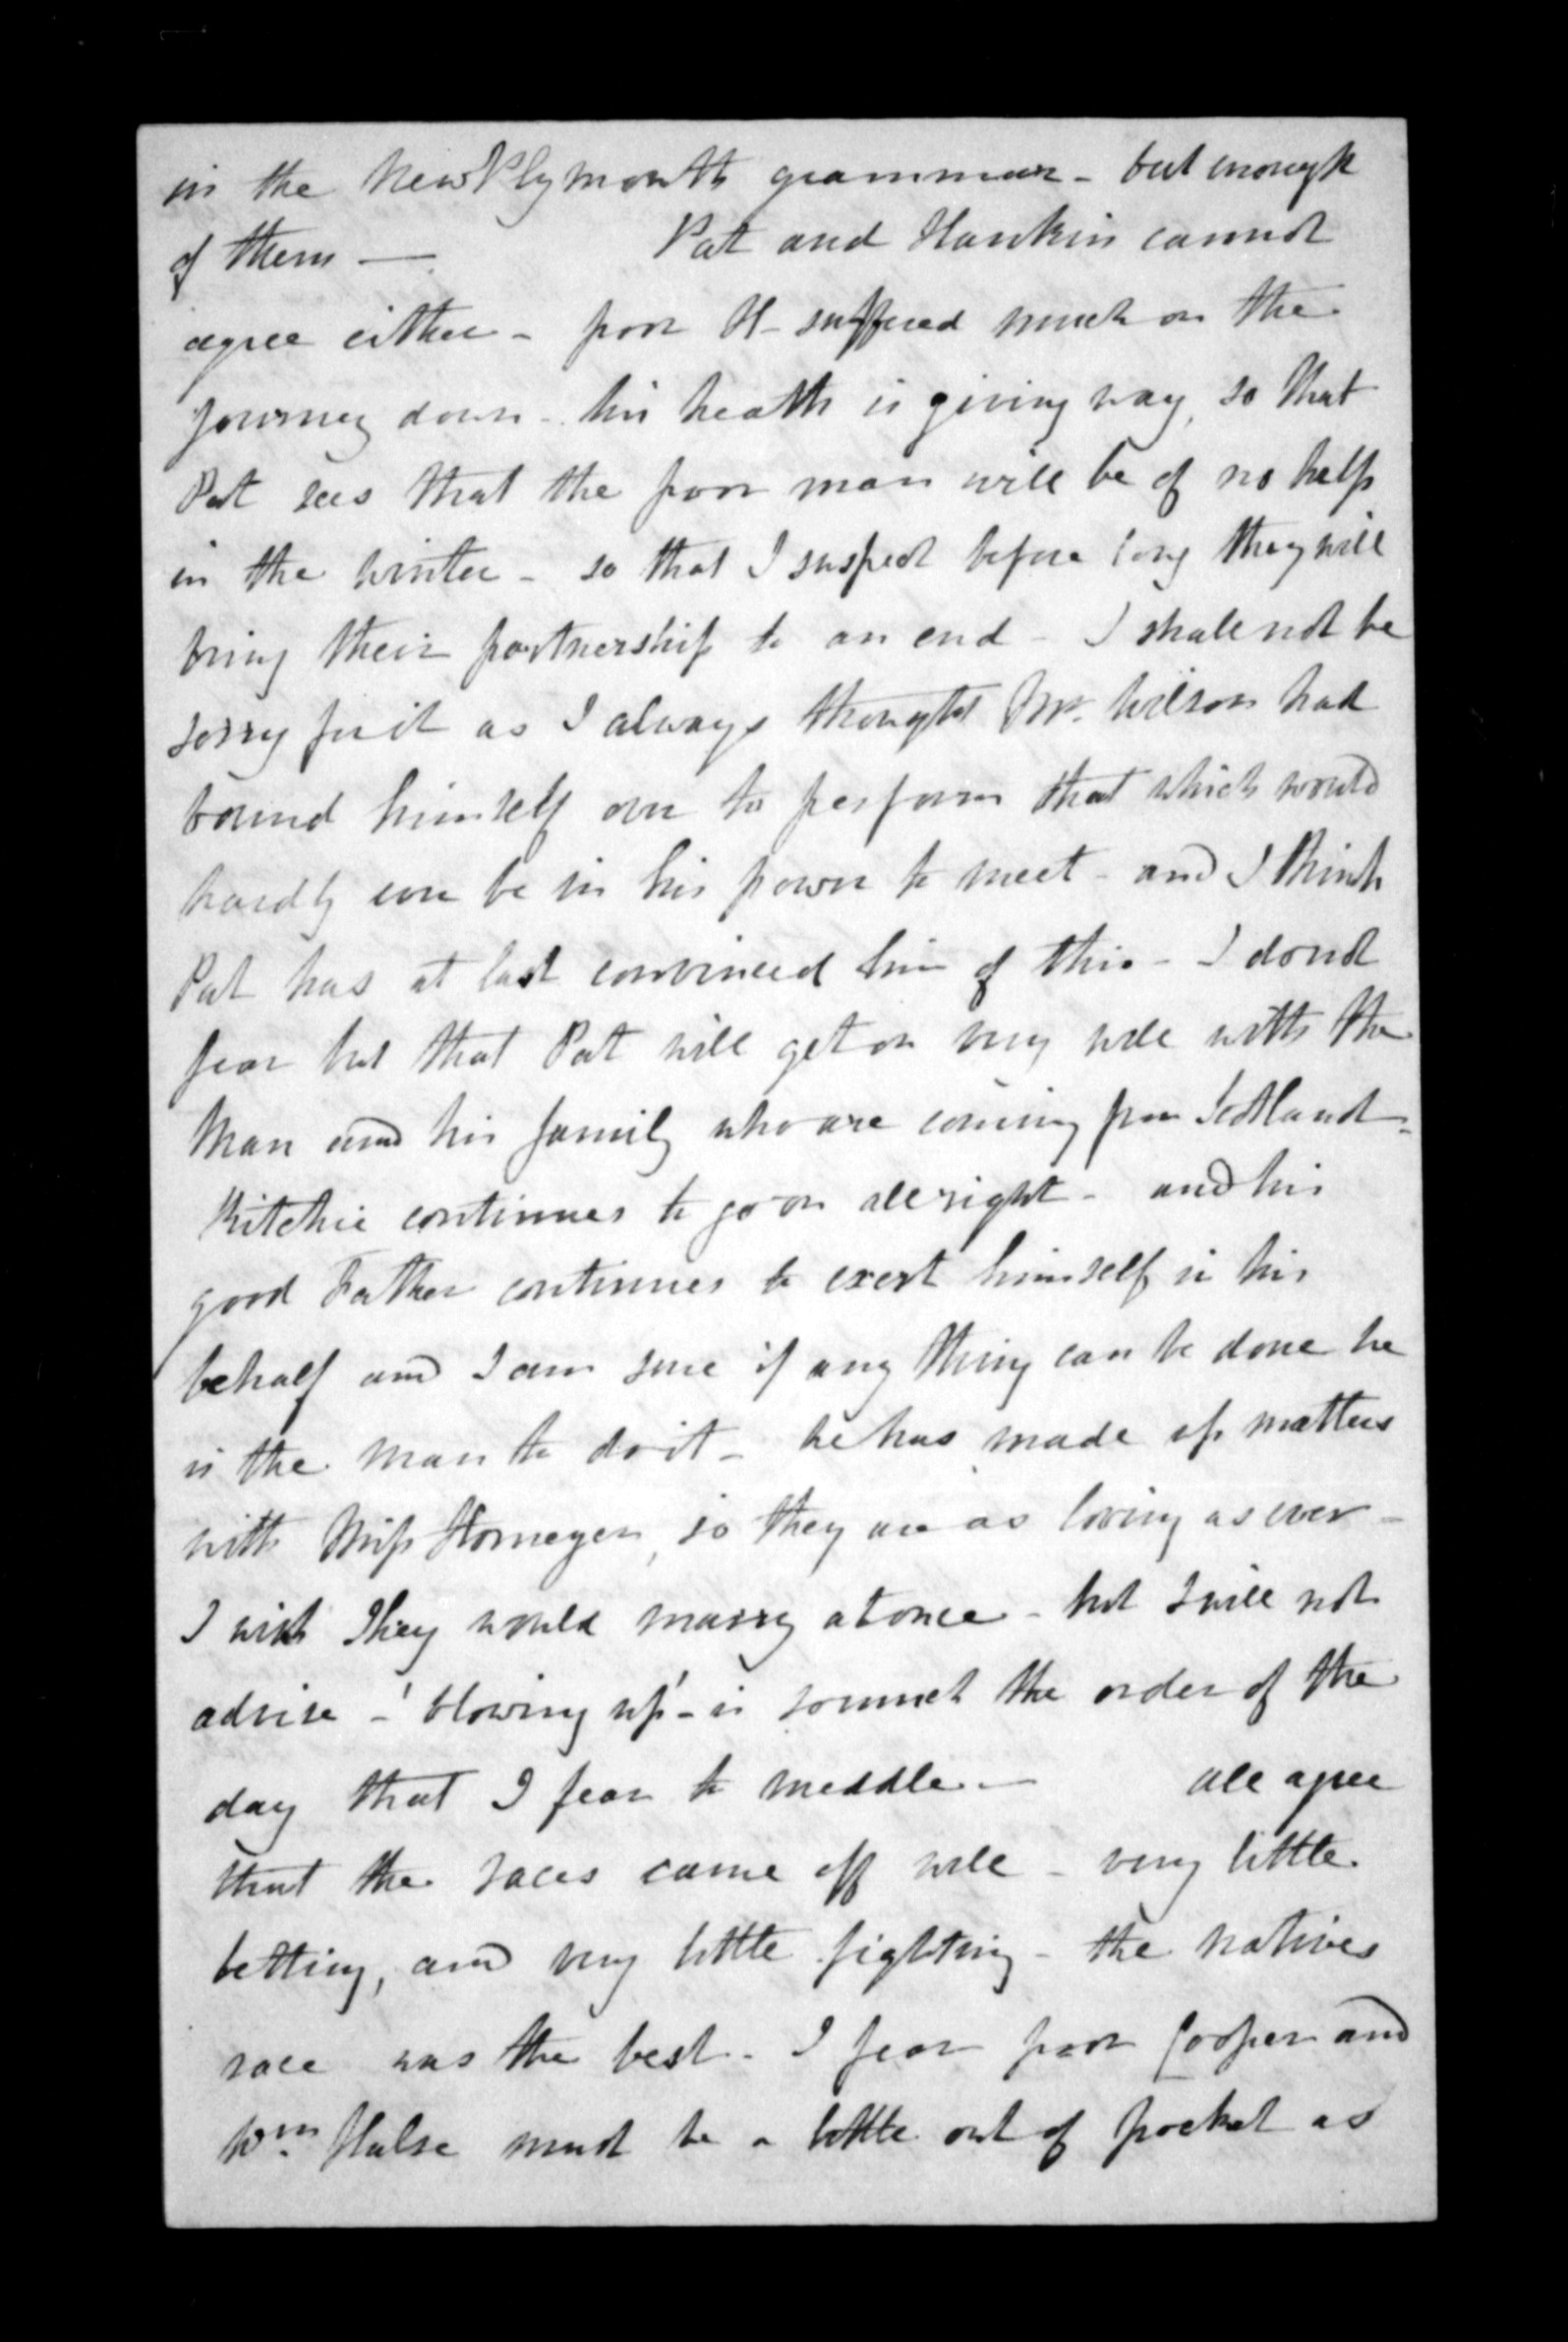 in the New Plymouth grammar - but enough
of them — Pat and Hankin cannot
agree either - poor H - suffered much on the
journey down - his health is giving way, so that
Pat sees that the poor man will be of no help
in the winter - so that I suspect before long they will
bring their partnership to an end - I shall not be
sorry for it as I always thought Mr. Wilson had
bound himself over to perform that which would
hardly ever be in his power to meet - and I think
Pat has at last convinced him of this - I do not
fear but that Pat will get on very well with the
Man and his family who are coming from Scotland -
Ritchie continues to go on all right - and his
good Father continues to exert himself in his
behalf and I am sure if any thing can be done he
is the man to do it - he has made up matters
with Miss Hormeyer, so they are as loving as ever -
I wish they would marry at once - but I will not
advise - 'blowing up' - is so much the order of the
day that I fear to meddle — all agree
that the races came off well - very little
betting, and very little fighting - the natives
race was the best - I fear poor Cooper and
Wm. Halse must be a little out of pocket as